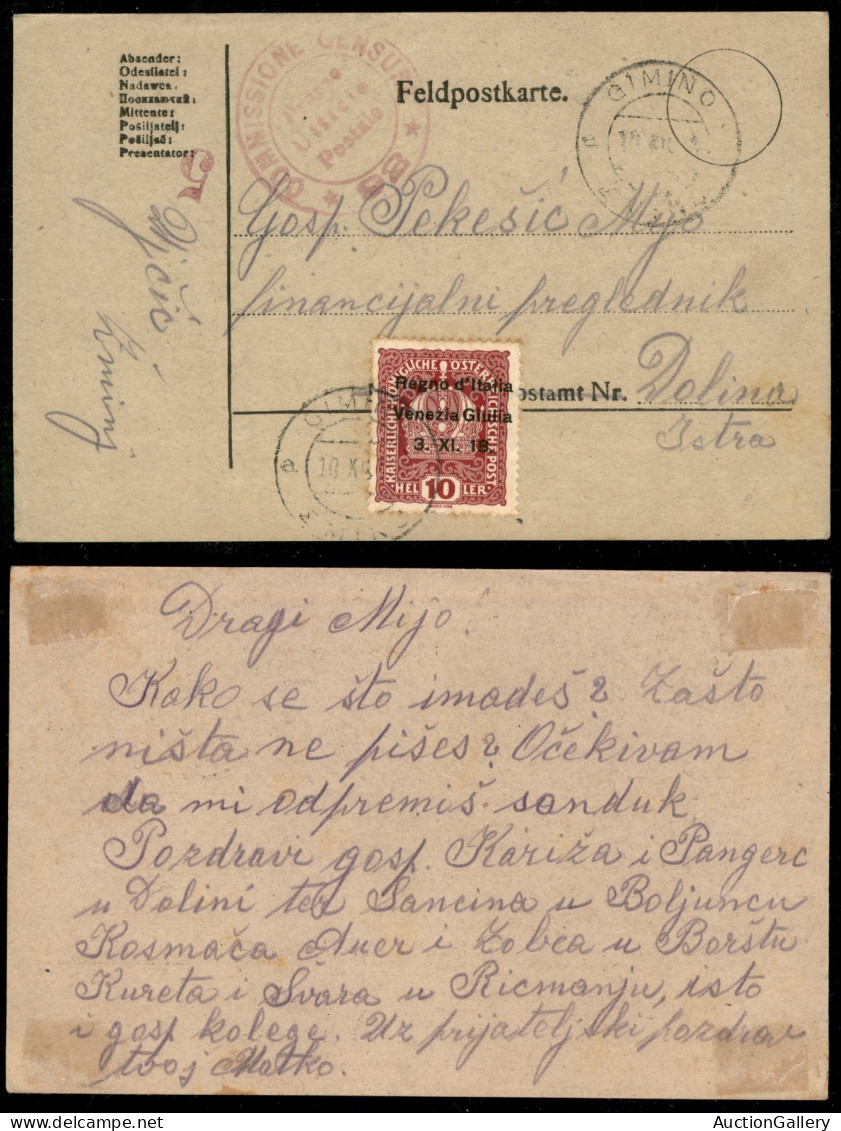 Absender:
Odesílatel:
Nadawca:
Mittente:
Pošiljatelj:
Pošiljač:
Presentator:
COMMISSIONE CENSURA
Ufficio
Postale
Feldpostkarte.
GIMINO
Gosp. Pekešić Mijo
financijalni preglednik
Postamt Nr. Dolina
Istra
Žminj
KAISERLICHE KÖNIGLICHE ÖSTERREICHISCHE POST
Regno d'Italia
Venezia Giulia
3. XI. 18.
10
HELLER
GIMINO
Dragi Mijo!
Kako se što imadeš? Zašto
ništa ne pišeš? Očekivam
da mi odpremiš sanduk.
Pozdravi gosp. Kariža i Pangerc
u Dolini ter Sancina u Boljuncu
Kosmača Auer i Zobca u Borštu
Kureta i Švara u Ricmanju, isto
i gosp. kolege. Uz prijateljski pozdrav
tvoj Matko.
AuctionGallery